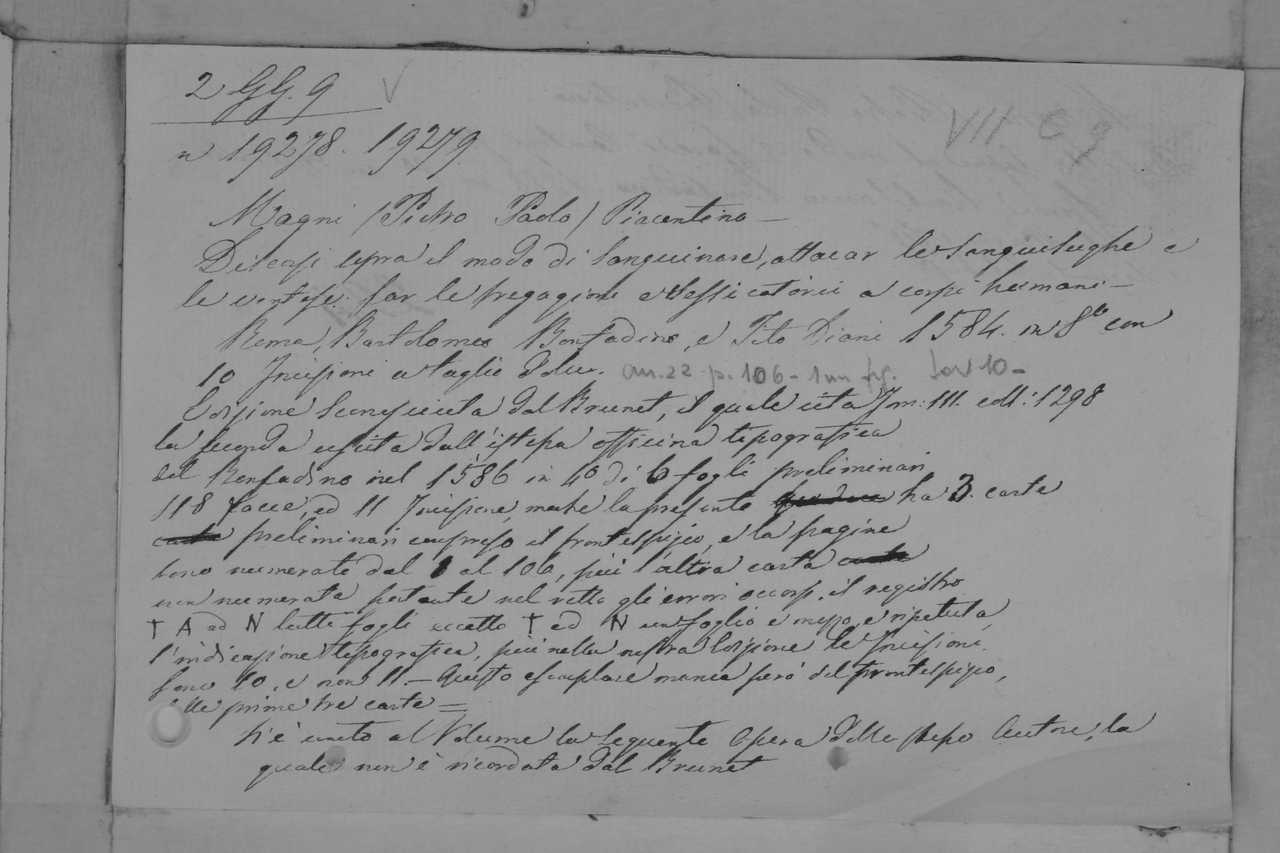 2 GG. 9 V
VII C 9
n 19278. 19279
Magni (Pietro Paolo) Piacentino —
Discorsi sopra il modo di sanguinare, attacar le sanguisughe e
le ventose, far le fregagioni e vessicatorii a corpi humani —
Roma, Bartolomeo Bonfadino, e Tito Diani 1584. in 8to con
10 Incisioni a taglio dolce. an. 22 p. 106 - 1 nn fig. tav 10 -
Edizione sconosciuta dal Brunet, il quale cita Tom: III. coll: 1298
la seconda uscita dall'istessa officina tipografica
del Bonfadino nel 1586 in 4o di 6 fogli preliminari
118 facce, ed 11 Incisione, mentre la presente ha 3. carte
carte preliminari compreso il frontespizio, e la pagine
sono numerate dal 1 al 106, più l'altra carta
non numerata portante nel retto gli errori occorsi. il registro
† A ad N tutti fogli eccetto † ed N un foglio e mezzo, e ripetuta
l'indicazione tipografica, più nella nostra Edizione le Incisioni
sono 10, e non 11. — Questo esemplare manca però del frontespizio,
e delle prime tre carte =
V'è unito al Volume la seguente Opera dello stesso Autore, la
quale non è ricordata dal Brunet